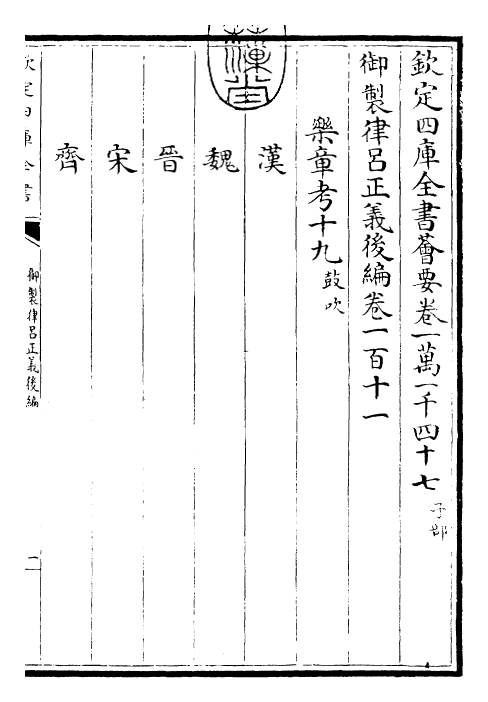 欽定四庫全書薈要卷一萬一千四十七子部
御製律呂正義後編卷一百十一
樂章考十九鼓吹
漢
魏
晉
宋
齊
欽定四庫全書
御製律呂正義後編
一